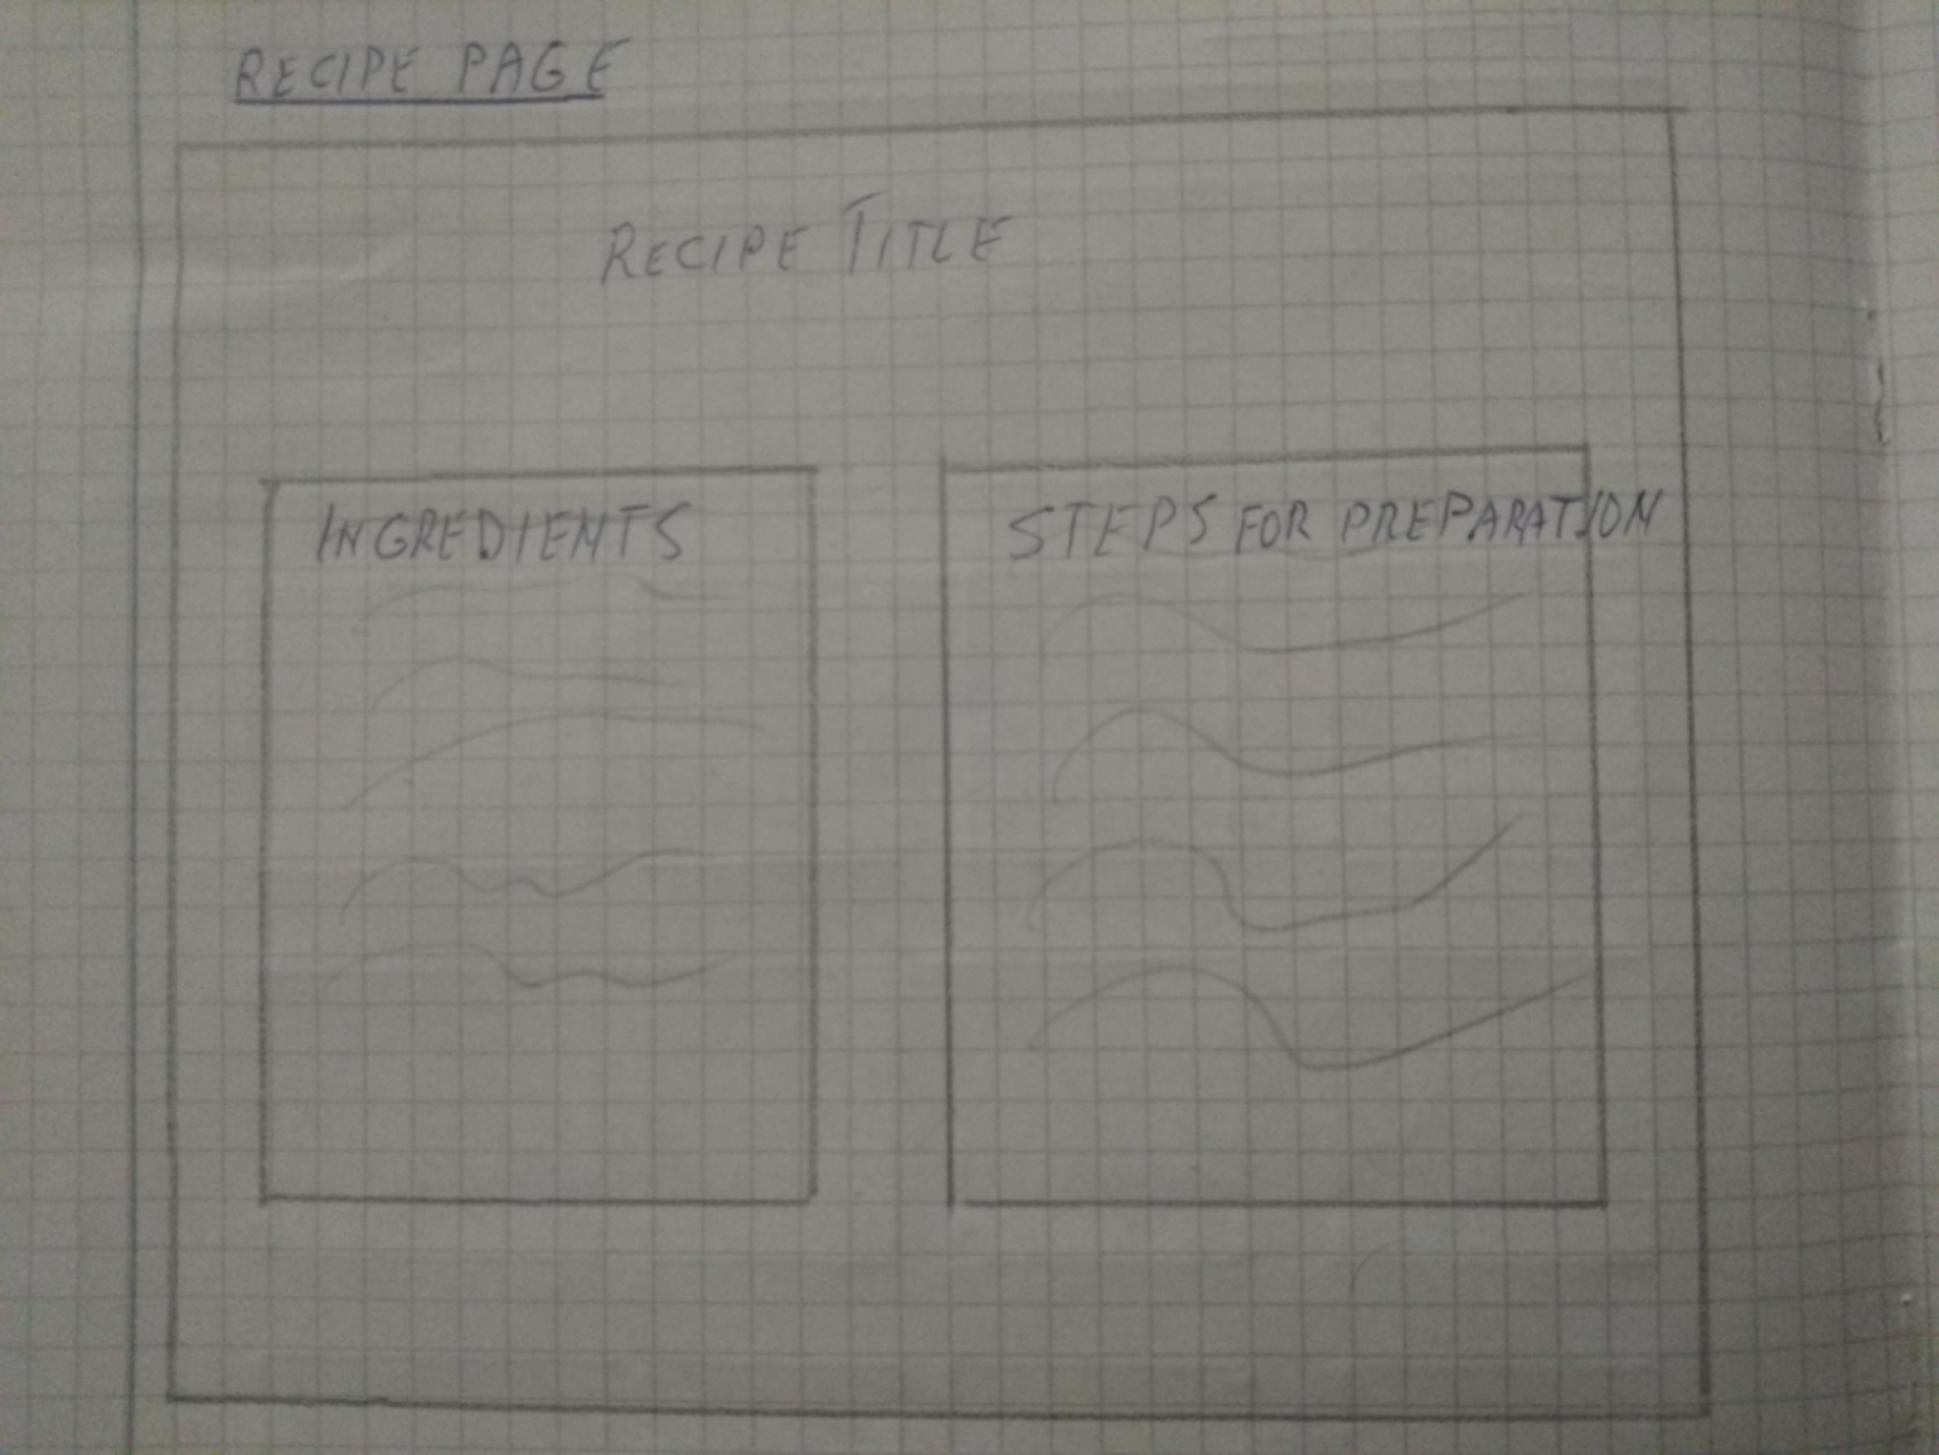 RECIPE PAGE
RECIPE TITLE
INGREDIENTS
STEPS FOR PREPARATION